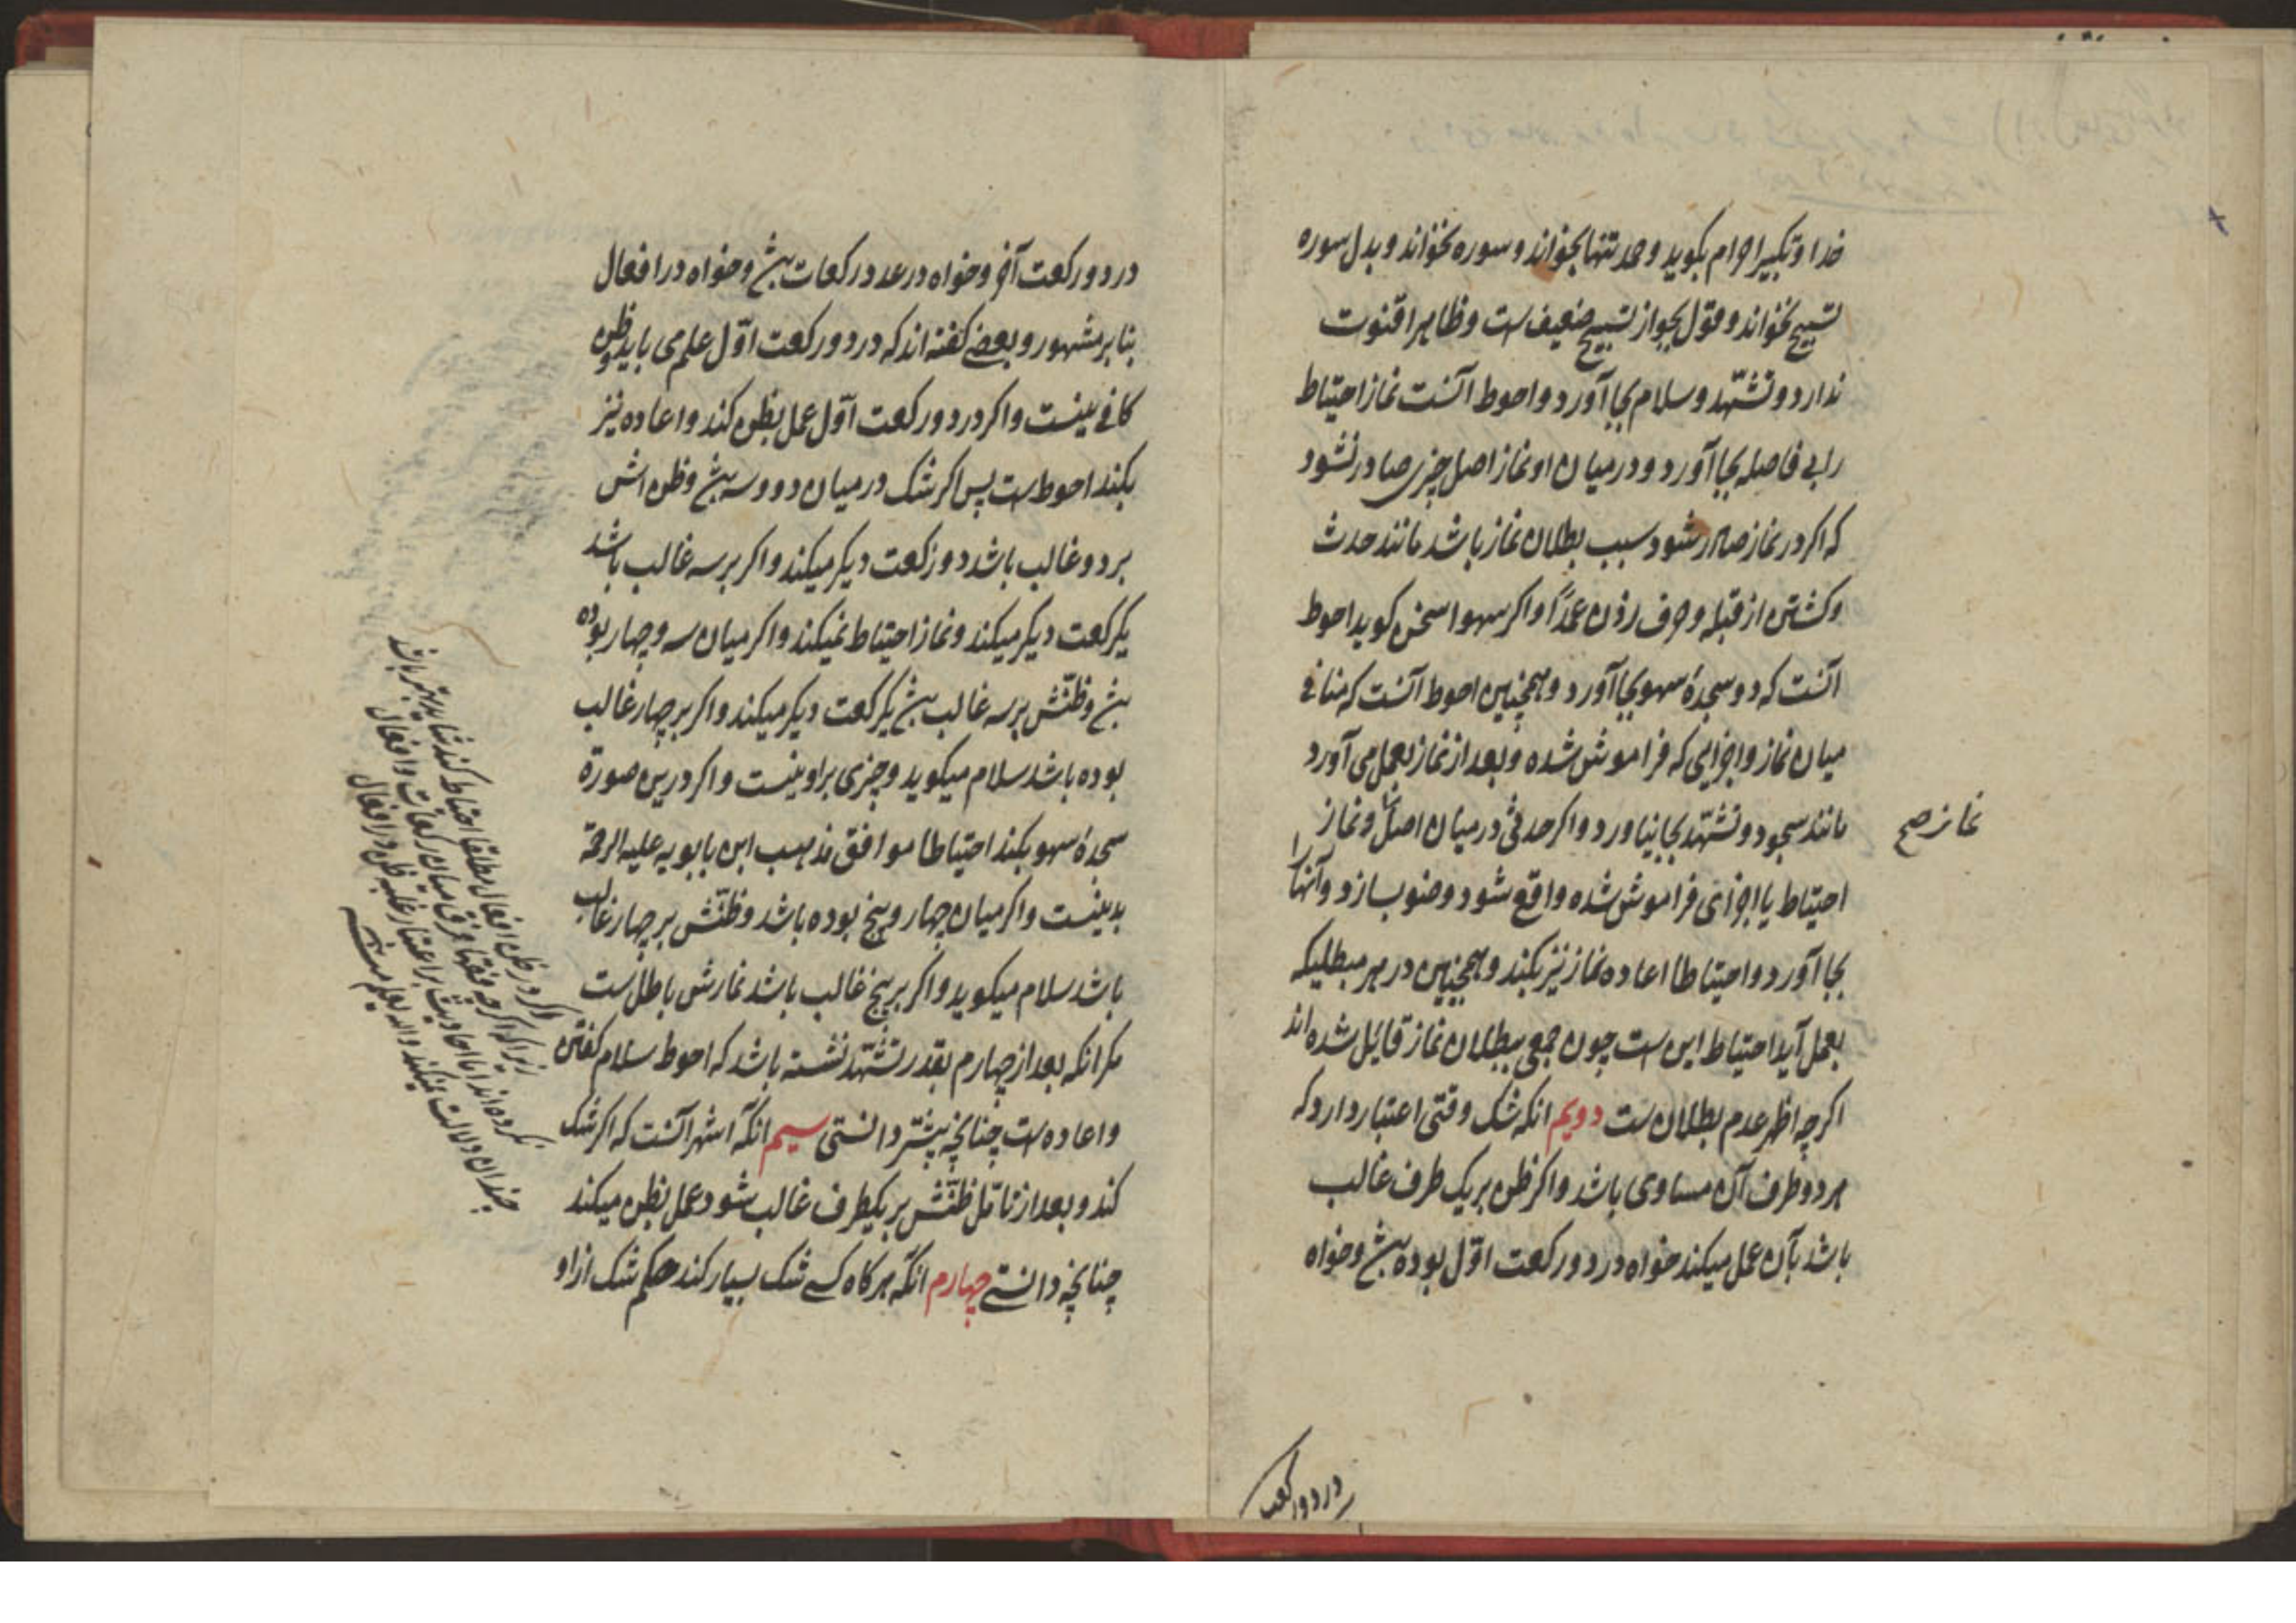 خدا و تکبیر احرام بکوید و حمد تنها بخواند و سوره نخواند و بدل سوره
تسبیح نخواند و قول بجواز تسبیح ضعیف ست و ظاهرا قنوت
ندارد و تشهّد و سلام بجا آورد و احوط آنست نماز احتیاط
را بی فاصله بجا آورد و درمیان او نماز اصل چیزی صادر نشود
که اکر در نماز صادر شود سبب بطلان نماز باشد مانند حدث
و کشتن از قبله و حرف زدن عمدًا و اکر سهوا سخن کوید احوط
آنست که دو سجدهٔ سهو بجا آورد و همچنین احوط آنست که منافی
میان نماز و اجزایی که فراموش شده و بعد از نماز بعمل می آورد
مانند سجود و تشهّد بجا نیاورد و اکر حدثی درمیان اصل و نماز
نماز صح
احتیاط یا اجزای فراموش شده واقع شود وضو بسازد و آنها را
بجا آورد و احتیاطا اعاده نماز نیز بکند و همچنین در هر مبطلیکه
بعمل آید احتیاط این ست چون جمعی ببطلان نماز قایل شده اند
اکرچه اظهر عدم بطلان ست دویم انکه شک وقتی اعتبار دارد که
هر دو طرف آن مساوی باشد و اکر ظن بر یک طرف غالب
باشد بآن عمل میکند خواه در دو رکعت اوّل بوده بش و خواه
در دو رکعت
در دو رکعت آخر و خواه در عدد رکعات بش و خواه در افعال
بنا بر مشهور و بعضی کفته اند که در دو رکعت اوّل علم می باید و ظن
کافی نیست و اکر در دو رکعت اوّل عمل بظن کند و اعاده نیز
بکند احوط ست پس اکر شک درمیان دو و سه بش و ظن اش
بر دو غالب باشد دو رکعت دیکر میکند و اکر بر سه غالب باشد
یکرکعت دیکر میکند و نماز احتیاط نمیکند و اکر میان سه و چهار بوده
بش و ظنّش بر سه غالب بش یکرکعت دیکر میکند و اکر بر چهار غالب
بوده باشد سلام میکوید و چیزی بر او نیست و اکر درین صورة
سجدهٔ سهو بکند احتیاطا موافق مذهب ابن بابویه علیه الرحمة
بد نیست و اکر میان چهار و پنج بوده باشد و ظنّش بر چهار غالب
باشد سلام میکوید و اکر بر پنج غالب باشد نمازش باطل ست
مکر انکه بعد از چهارم بقدر تشهّد نشسته باشد که احوط سلام کفتن
و اعاده ست چنانچه پیشتر دانستی سیم انکه اشهر آنست که اکر شک
کند و بعد از تامّل ظنّش بر یکطرف غالب شود عمل بظن میکند
چنانچه دانستی چهارم انکه هرکاه کسی شک بسیار کند حکم شک از او
و اکر در ظن افعال مطلقا احتیاط کند شاید بهتر باشد
زیرا که اکرچه فقها فرق میان رکعات و افعال
نکرده اند اما احادیث بر اعتبار غلبه ظن در افعال
چندان دلالت نمیکند و الله یعلم